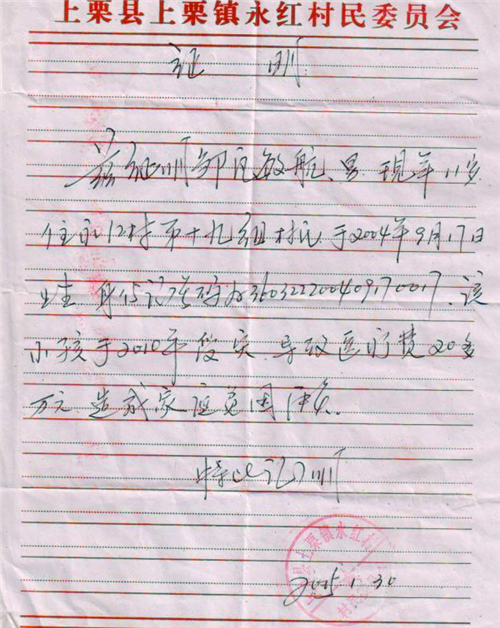 上栗县上栗镇永红村民委员会
证 明
兹证明邹民敏航、男、现年11岁
住永红村第十九组村民、于2004年9月17日
出生、身份证号码为360322200409170017、该
小孩于2010年 导致医疗费20多
万元 造成家庭贫困
特此证明
上栗镇永红村
2015.1.30